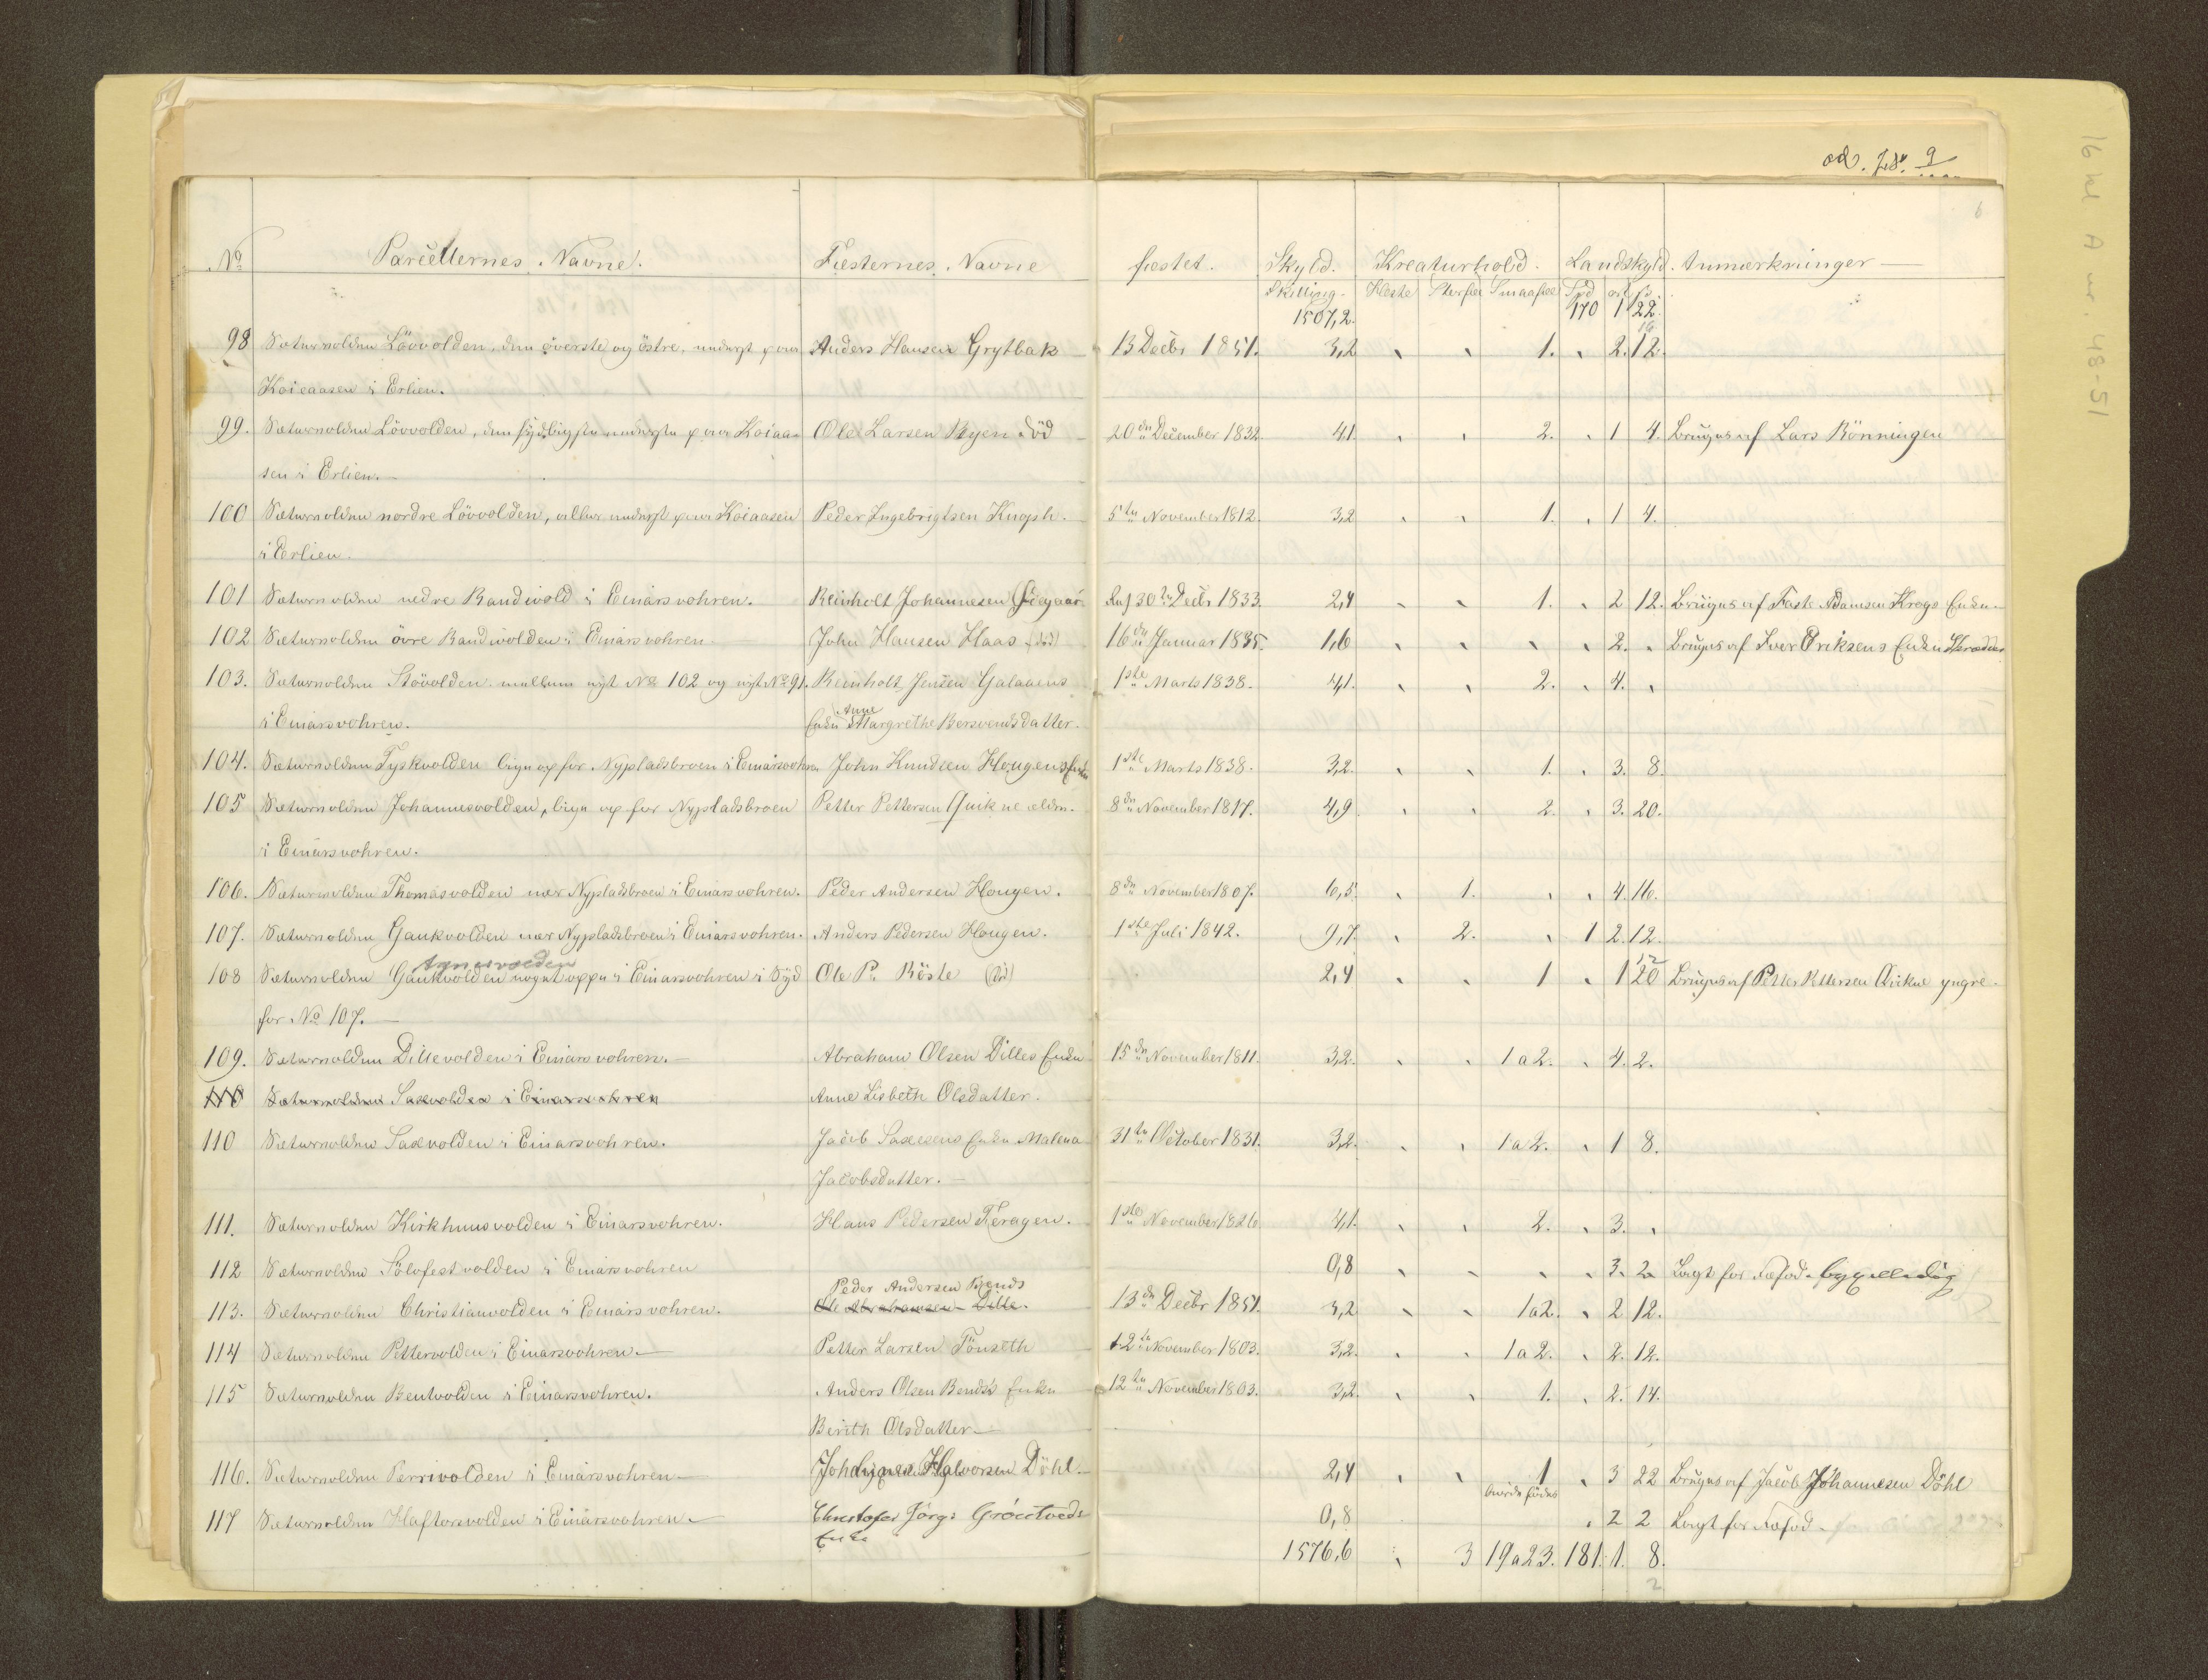 No Parcellernes Navne. Fæsternes Navne fæstet. Skyld. Kreaturhold. Landskyld. Anmærkninger
Skilling Heste Storfæ Smaafæ Spd ort s.
1507,2. 170 1 22
98 Sætervolden Lövvolden, den överste og östre, nederst paa Anders Hansen Grytbak 13 Decbr 1851. 3,2 " " 1. " 2. 12.
Koieaasen i Erlien.
99. Sætervolden Lövvolden, den sydligste nederste paa Koiaa- Ole Larsen Ryen död 20de December 1832 4,1. " " 2. " 1 4. Bruges af Lars Rönningen
sen i Erlien.
100 Sætervolden nordre Lövvolden, aller nederst paa Koiaasen Peder Ingebrigtsen Knoph. 5te November 1812. 3,2 " " 1. " 1 4.
i Erlien.
101 Sætervolden nedre Randivold i Einarsvohren. Reinholt Johannesen 30te Decbr 1833. 2,4 " " 1. " 2 12. Bruges af Faste Adamsen Krogs Enke.
102 Sætervolden övre Randivolden i Einarsvohren John Hansen Haas (död) 16de Januar 1835. 1,6 " " " " 2. " Bruges af Iver Eriksens Enke
103. Sætervolden Stövolden mellem nyt No 102 og nyt No 91. Reinholt Jensen Galaaens 1ste Marts 1838. 4,1. " " 2. " 4. "
i Einarsvohren. Enke Anne Margrethe Bersvendsdatter.
104. Sætervolden Tyskvolden lige op for Nypladsbroen i Einarsvohren John Knudsen Hougens Enke 1ste Marts 1838. 3,2. " " 1. " 3. 8.
105 Sætervolden Johannesvolden, lige op for Nypladsbroen Petter Pettersen Quikne ældre. 8de November 1817. 4,9 " " 2. " 3. 20.
i Einarsvohren.
106. Sætervolden Thomasvolden nær Nypladsbroen i Einarsvohren. Peder Andersen Hougen. 8de November 1807. 6,5 " 1. " " 4. 16.
107. Sætervolden Gaukvolden nær Nypladsbroen i Einarsvohren. Anders Pedersen Hougen. 1ste Juli 1842. 9,7. " 2. " 1 2. 12.
108 Sætervolden Gaukvolden noget oppe i Einarsvohren i Syd Ole P. Röste (död) 2,4 " " 1 " 1 20 Bruges af Petter Pettersen Qvikne yngre.
for No 107.
109. Sætervolden Dillevolden i Einarsvohren. Abraham Olsen Dilles Enke 15de November 1811. 3,2. " " 1 a 2. " 4. 2.
110 Sætervolden Saxevolden i Einarsvohren Anne Lisbeth Olsdatter.
110 Sætervolden Saxevolden i Einarsvohren. Jacob Saxesens Enke Malena 31te October 1831. 3,2. " " 1 a 2. " 1 8.
Jacobsdatter.
111. Sætervolden Kirkhuusvolden i Einarsvohren. Hans Pedersen Feragen. 1ste November 1826. 4,1. " " 2. " 3. "
112 Sætervolden Sölvfestvolden i Einarsvohren 0,8 " " " " 3. 2. Lagt for Fæfod.
Peder Andersen Bends
113. Sætervolden Christianvolden i Einarsvohren. Ole Abrahamsen Dille. 13de Decbr 1851. 3,2 " " 1 a 2. " 2 12.
114 Sætervolden Pettervolden i Einarsvohren. Petter Larsen Tönseth 12te November 1803. 3,2. " " 1 a 2. " 2. 12.
115 Sætervolden Bentvolden i Einarsvohren. Anders Olsen Bends's Enke 12te November 1803. 3,2. " " 1. " 2. 14.
Berith Olsdatter
116. Sætervolden Perrivolden i Einarsvohren Johannes Halvorsen Döhl. 2,4 " " 1 " 3 22 Bruges af Jacob Johannesen Döhl
117 Sætervolden Haftorsvolden i Einarsvohren Christofer Jörgs Gröntveds 0,8 " 2 2 Lagt for Fæfod.
Enke
1576,6 " 3 19 a 23. 181. 1. 8.
2